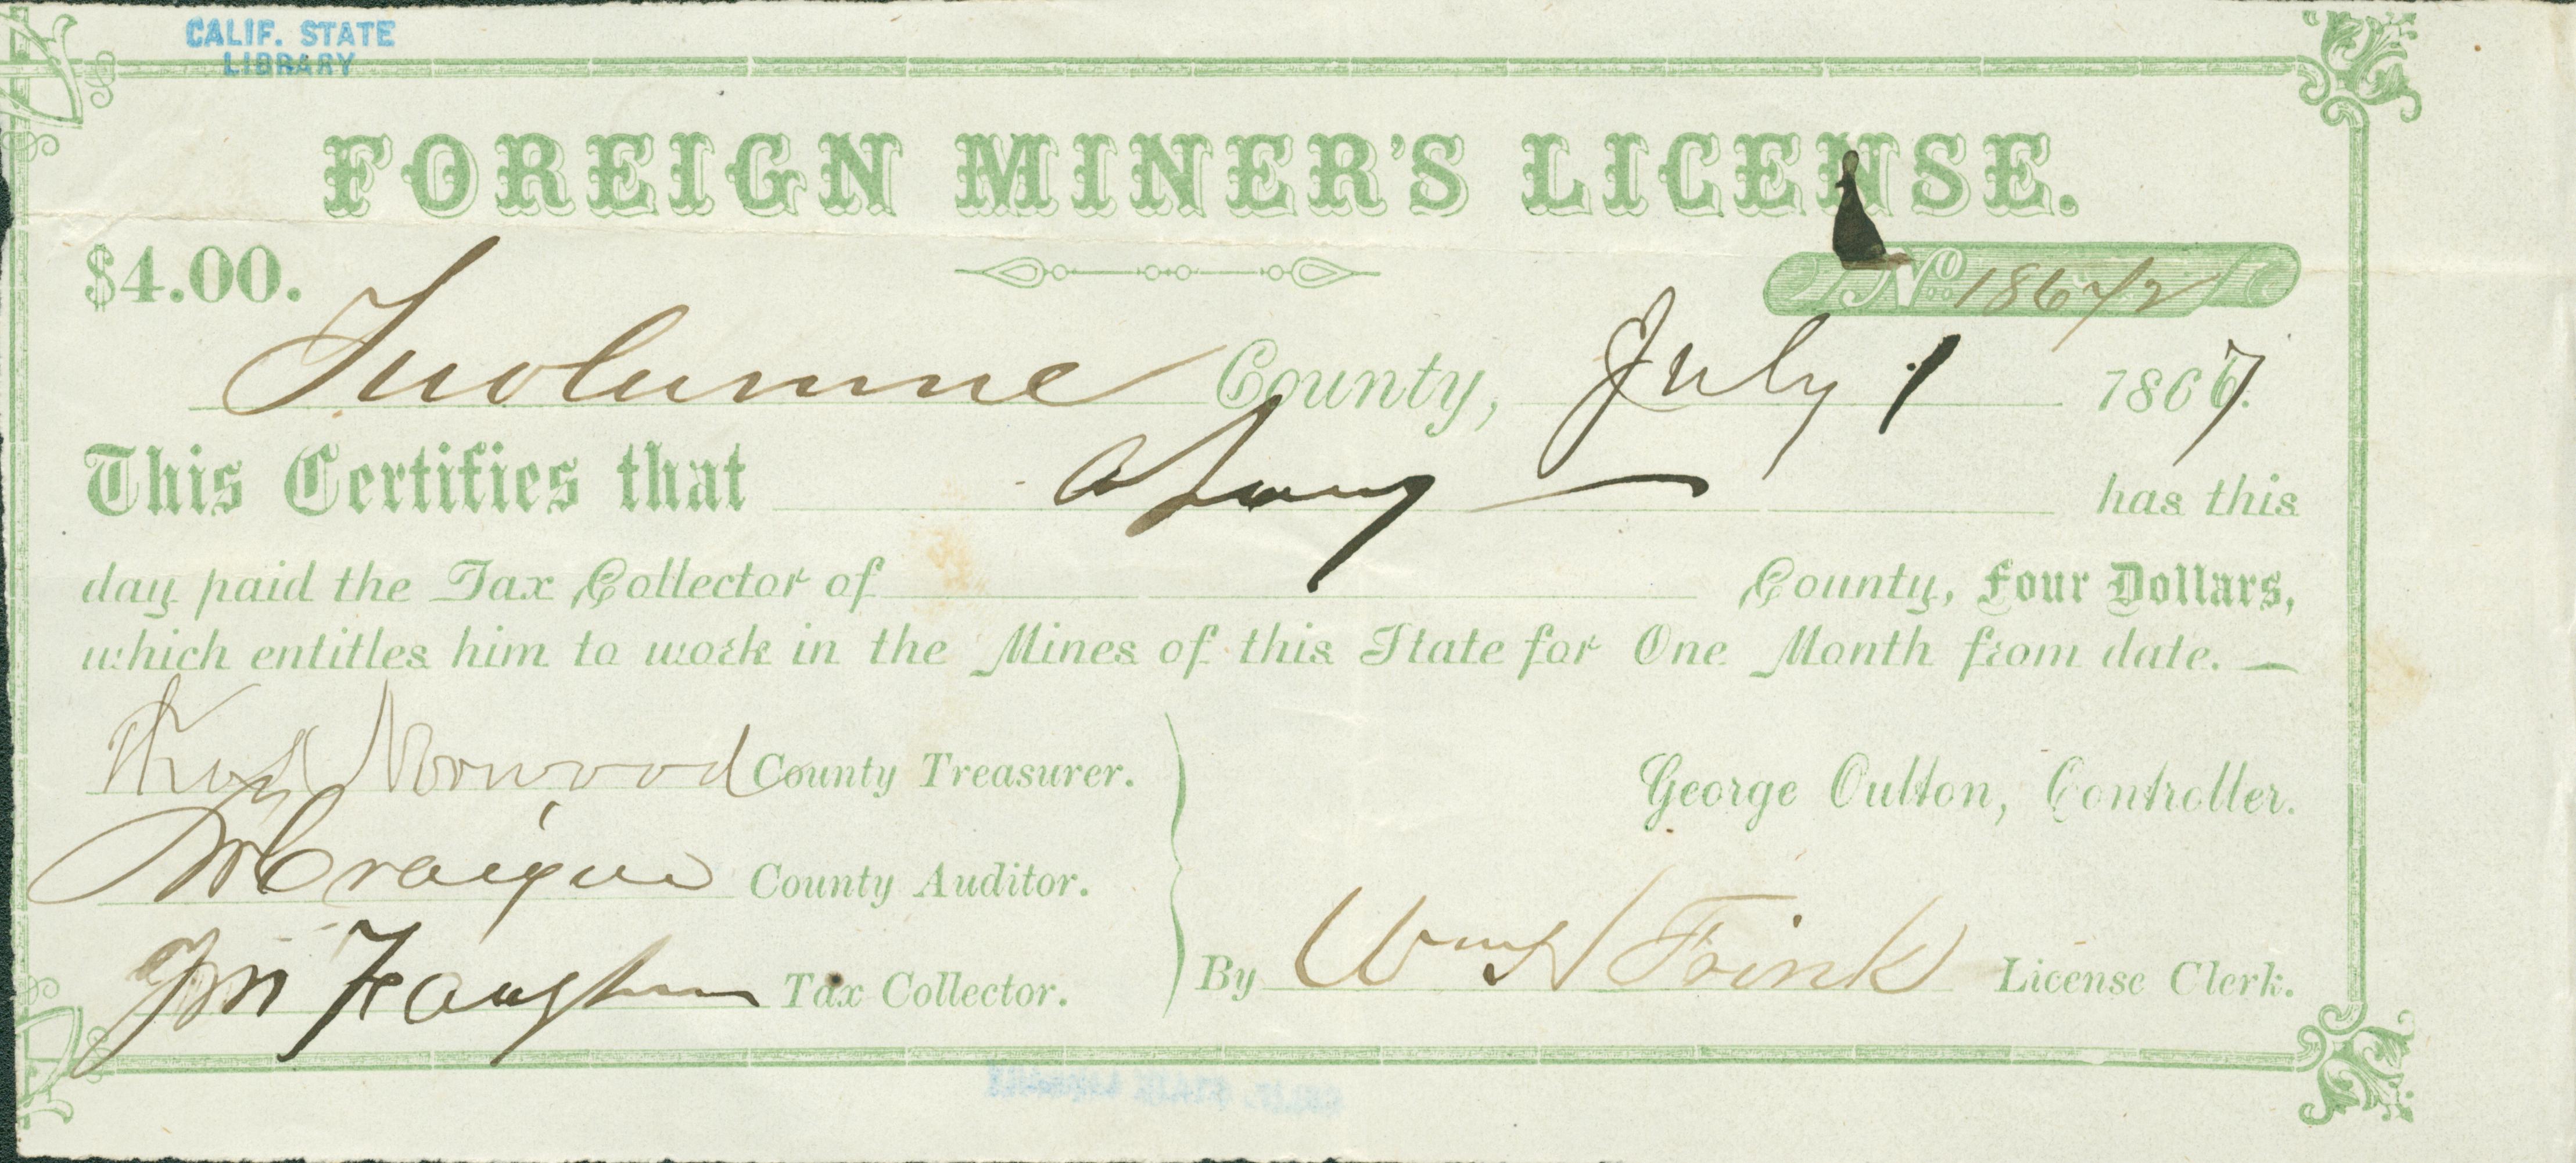 CALIF. STATE
LIBRARY
FOREIGN MINER'S LICENSE.
$4.00.
No. 18672
Tuolumne County, July 1 1867.
This Certifies that has this
day paid the Tax Collector of County, Four Dollars,
which entitles him to work in the Mines of this State for One Month from date.
Norwood County Treasurer.
George Oulton, Controller.
County Auditor.
Tax Collector.
By Wm H Frink License Clerk.